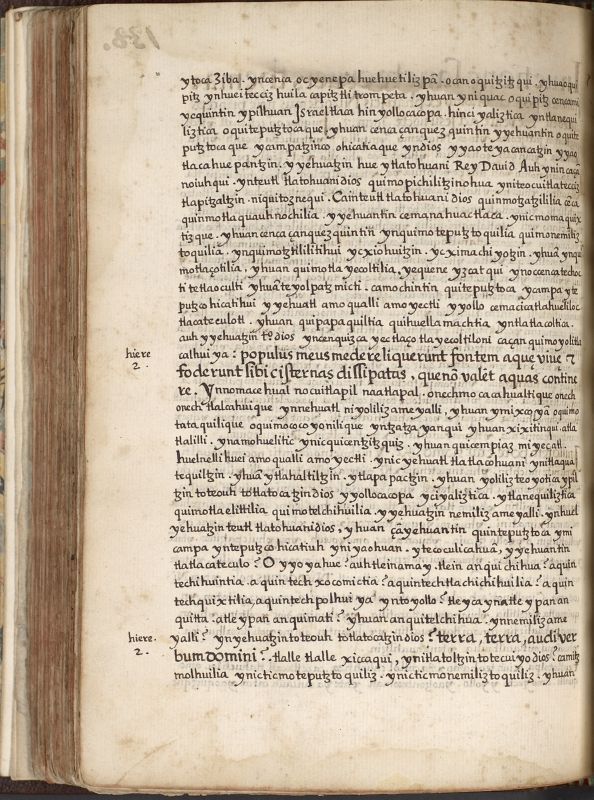 ytoca Ziba. yncença ocyenepa huehuetilizpã. ocan oquitzitzqui. yhuã oqui
pitz ynhueitecciz huilacapitztli trompeta. yhuan yniquac oquipitz cencamj
yequintin ypilhuan Israel tlacahin yollocacopa. hinci yaliztica yntlanequi
liztica oquiteputztocaque, yhuan cenca çanquez quintin yyehuantin oquite
putztocaque yyampatzinco ohicatiaque yndios yyaoteyacancatzin yyaq̃
tlacahuepantzin. yyehuatzin hueytlatohuani Rey David Auh ynin caçã
noiuhqui. ynteutl tlatohuani dios quimopichilitzinohua yniteocuitlatecciz
tlapitzaltzin. niquitoznequi. Cainteutl tlatohuani dios quinmotzatzililia cẽca
quinmotlaquauhnochilia. yyehuantin cemanahuactlaca. ynicmomaquix
tizque. yhuan cenca çanquez quintin ynquimoteputztoquilia quimonemiliz
toquilia. ynquimotztlilitihui ycxiohuitzin. ycximachiyotzin. yhuã ynqui
motlaçotilia, yhuan quimotlayecoltilia, yequene yzcatqui ynoccencatechoc
ti tetlaoculti yhuã teyolpatzmicti. camochintin quiteputztoca yyampa yte
putzco hicatihui yyehuatl amoqualli amoyectli yyollo cemacicatlahueliloc
tlacateculotl. yhuan quipapaquiltia quihuellamachtia yntlatlacoltica.
auh yyehuatzin tto dios yncenquizca yectlaçotlayecoltiloni caçan quimoyolitla
calhui ya: populus meus medereliquerunt fontem aquę viuę &
hiere 2.
foderunt sibi cisternas dissipatas, quenõ valẽt aquas contine
re. Ynnomacehual nocuitlapil naatlapal. onechmocacahualtique onech
onechtlalcahuique ynnehuatl niyoliliz ameyalli, yhuan ymixcoyã oquimo
tataquilique oquimococoyonilique yntzatzayanqui yhuan xixitinqui. atla
tlalilli. ynamohuelitic ynicquicentzitzquiz. yhuan quicempiaz miyecatl.
huelnelli huei amoqualli amoyectli. ynicyehuatl tlatlacohuani ynitlaqual
tequiltzin. yhuã ytlahaltiltzin. ytlapapactzin. yhuan yoliliz teoyotica ypil
tzin toteouh totlatocatzin dios yyollocacopa yciyaliztica. ytlanequiliztica
quimotlaelittilia quimotelchihuilia. yyehuatzin nemiliz ameyalli. ynhuel
yehuatzin teutl tlatohuani dios, yhuan çã yehuantin quinteputztoca ymi
campa ynteputzco hicatiuh yniyaohuan. ytecoculicahuã, yyehuantin
tlatlacateculo? O yyoyahue? auh tleinamay. tlein anquichihua? aquin
techihuintia. aquin techxocomictia? aquin techtlachichihuilia? aquin
techquixtilia, aquin techpolhui ya ynto yollo? tleyca ynatle ypan an
quitta? atle ypan anquimati? yhuan anquitelchihua. ynnemiliz ame
hiere. 2.
yalli? yn yehuatzin toteouh totlatocatzin dios? terra, terra, audi ver
bum domini? tlalle tlalle xiccaqui, ynitlatoltzin totecuiyo dios? camitz
molhuilia ynicticmoteputztoquiliz. ynicticmonemiliztoquiliz. yhuan